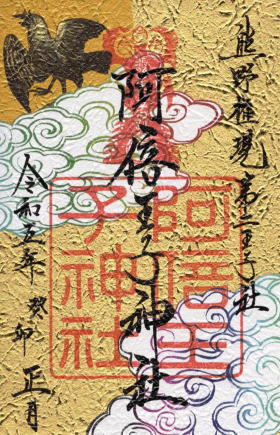 熊野権現 第二王子社
阿倍王子神社
令和五年 癸卯 正月
阿倍王子神社